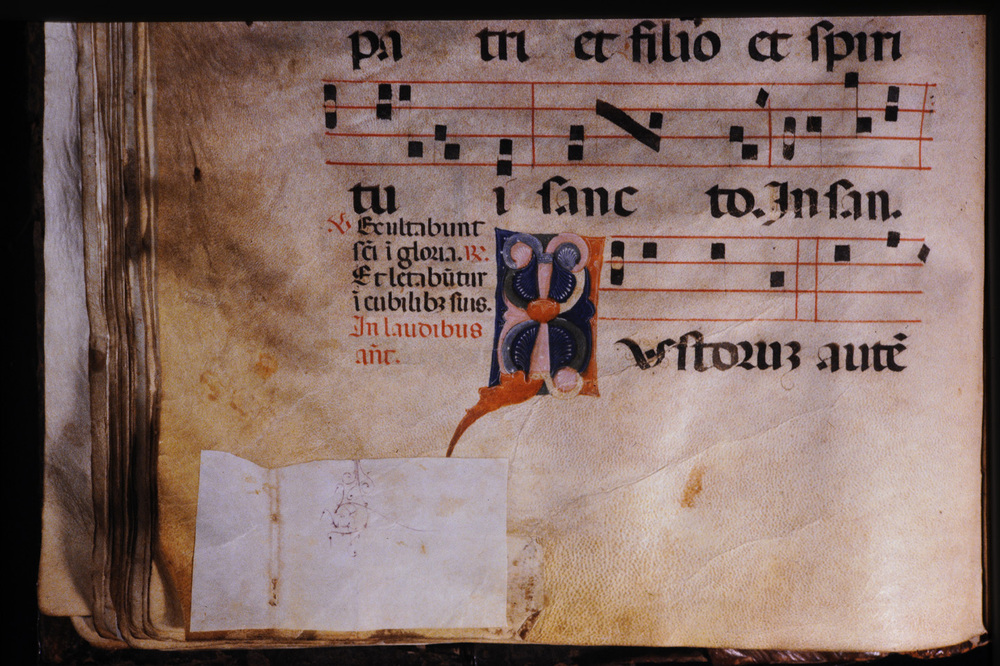 pa tri et filio et spiri
tu i sanc to. In san.
℣ Exultabunt
sc̄i i gloria. ℟.
Et letabūtur
i cubilibꝫ suis.
In laudibus
an̄t.
Iustoruꝫ autē